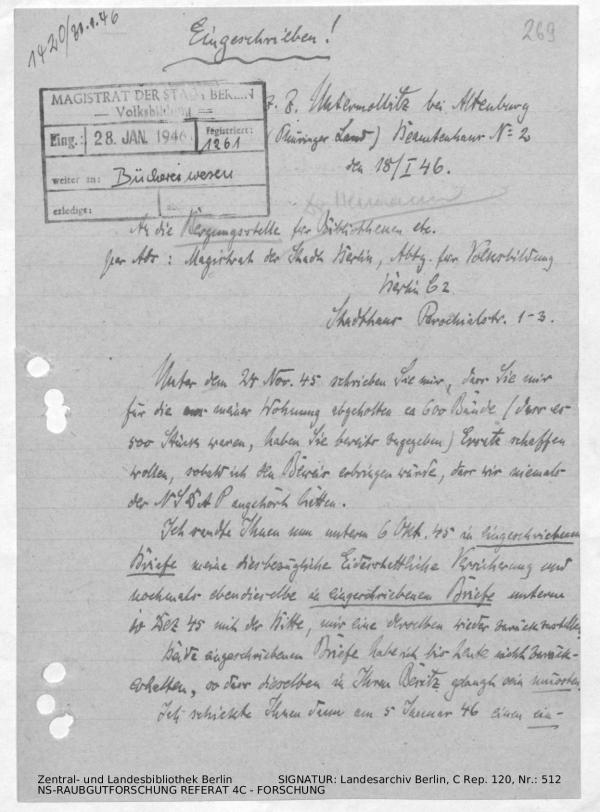 1420/28.1.46
Eingeschrieben!
269
MAGISTRAT DER STADT BERLIN
— Volksbildung —
Eing.: 28. JAN. 1946 registriert: 1261
weiter an: Büchereiwesen
erledigt:
z. Z. Untermolbitz bei Altenburg
(Thüringer Land) Beamtenhaus N= 2
den 18/I 46.
An die Bergungsstelle für Bibliotheken etc.
per Adr: Magistrat der Stadt Berlin, Abtg. für Volksbildung
Berlin C 2
Stadthaus Parochialstr. 1-3.
Unter dem 24 Nov. 45 schrieben Sie mir, dass Sie mir
für die aus meiner Wohnung abgeholten ca 600 Bände (dass es
500 Stück waren, haben Sie bereits zugegeben) Ersatz schaffen
wollen, sobald ich den Beweis erbringen würde, dass wir niemals
der NSDAP angehört hätten.
Ich sandte Ihnen nun unterm 6 Okt. 45 in eingeschriebenem
Briefe meine diesbezügliche Eidesstattliche Versicherung und
nochmals ebendieselbe in eingeschriebenen Briefe unterm
Dez 45 mit der Bitte, mir eine derselben wieder zurückzustellen.
Beide eingeschriebenen Briefe habe ich bis heute nicht zurück-
erhalten, so dass dieselben in Ihren Besitz gelangt sein mussten.
Ich schickte Ihnen dann am 5 Januar 46 einen ein-
Zentral- und Landesbibliothek Berlin SIGNATUR: Landesarchiv Berlin, C Rep. 120, Nr.: 512
NS-RAUBGUTFORSCHUNG REFERAT 4C - FORSCHUNG